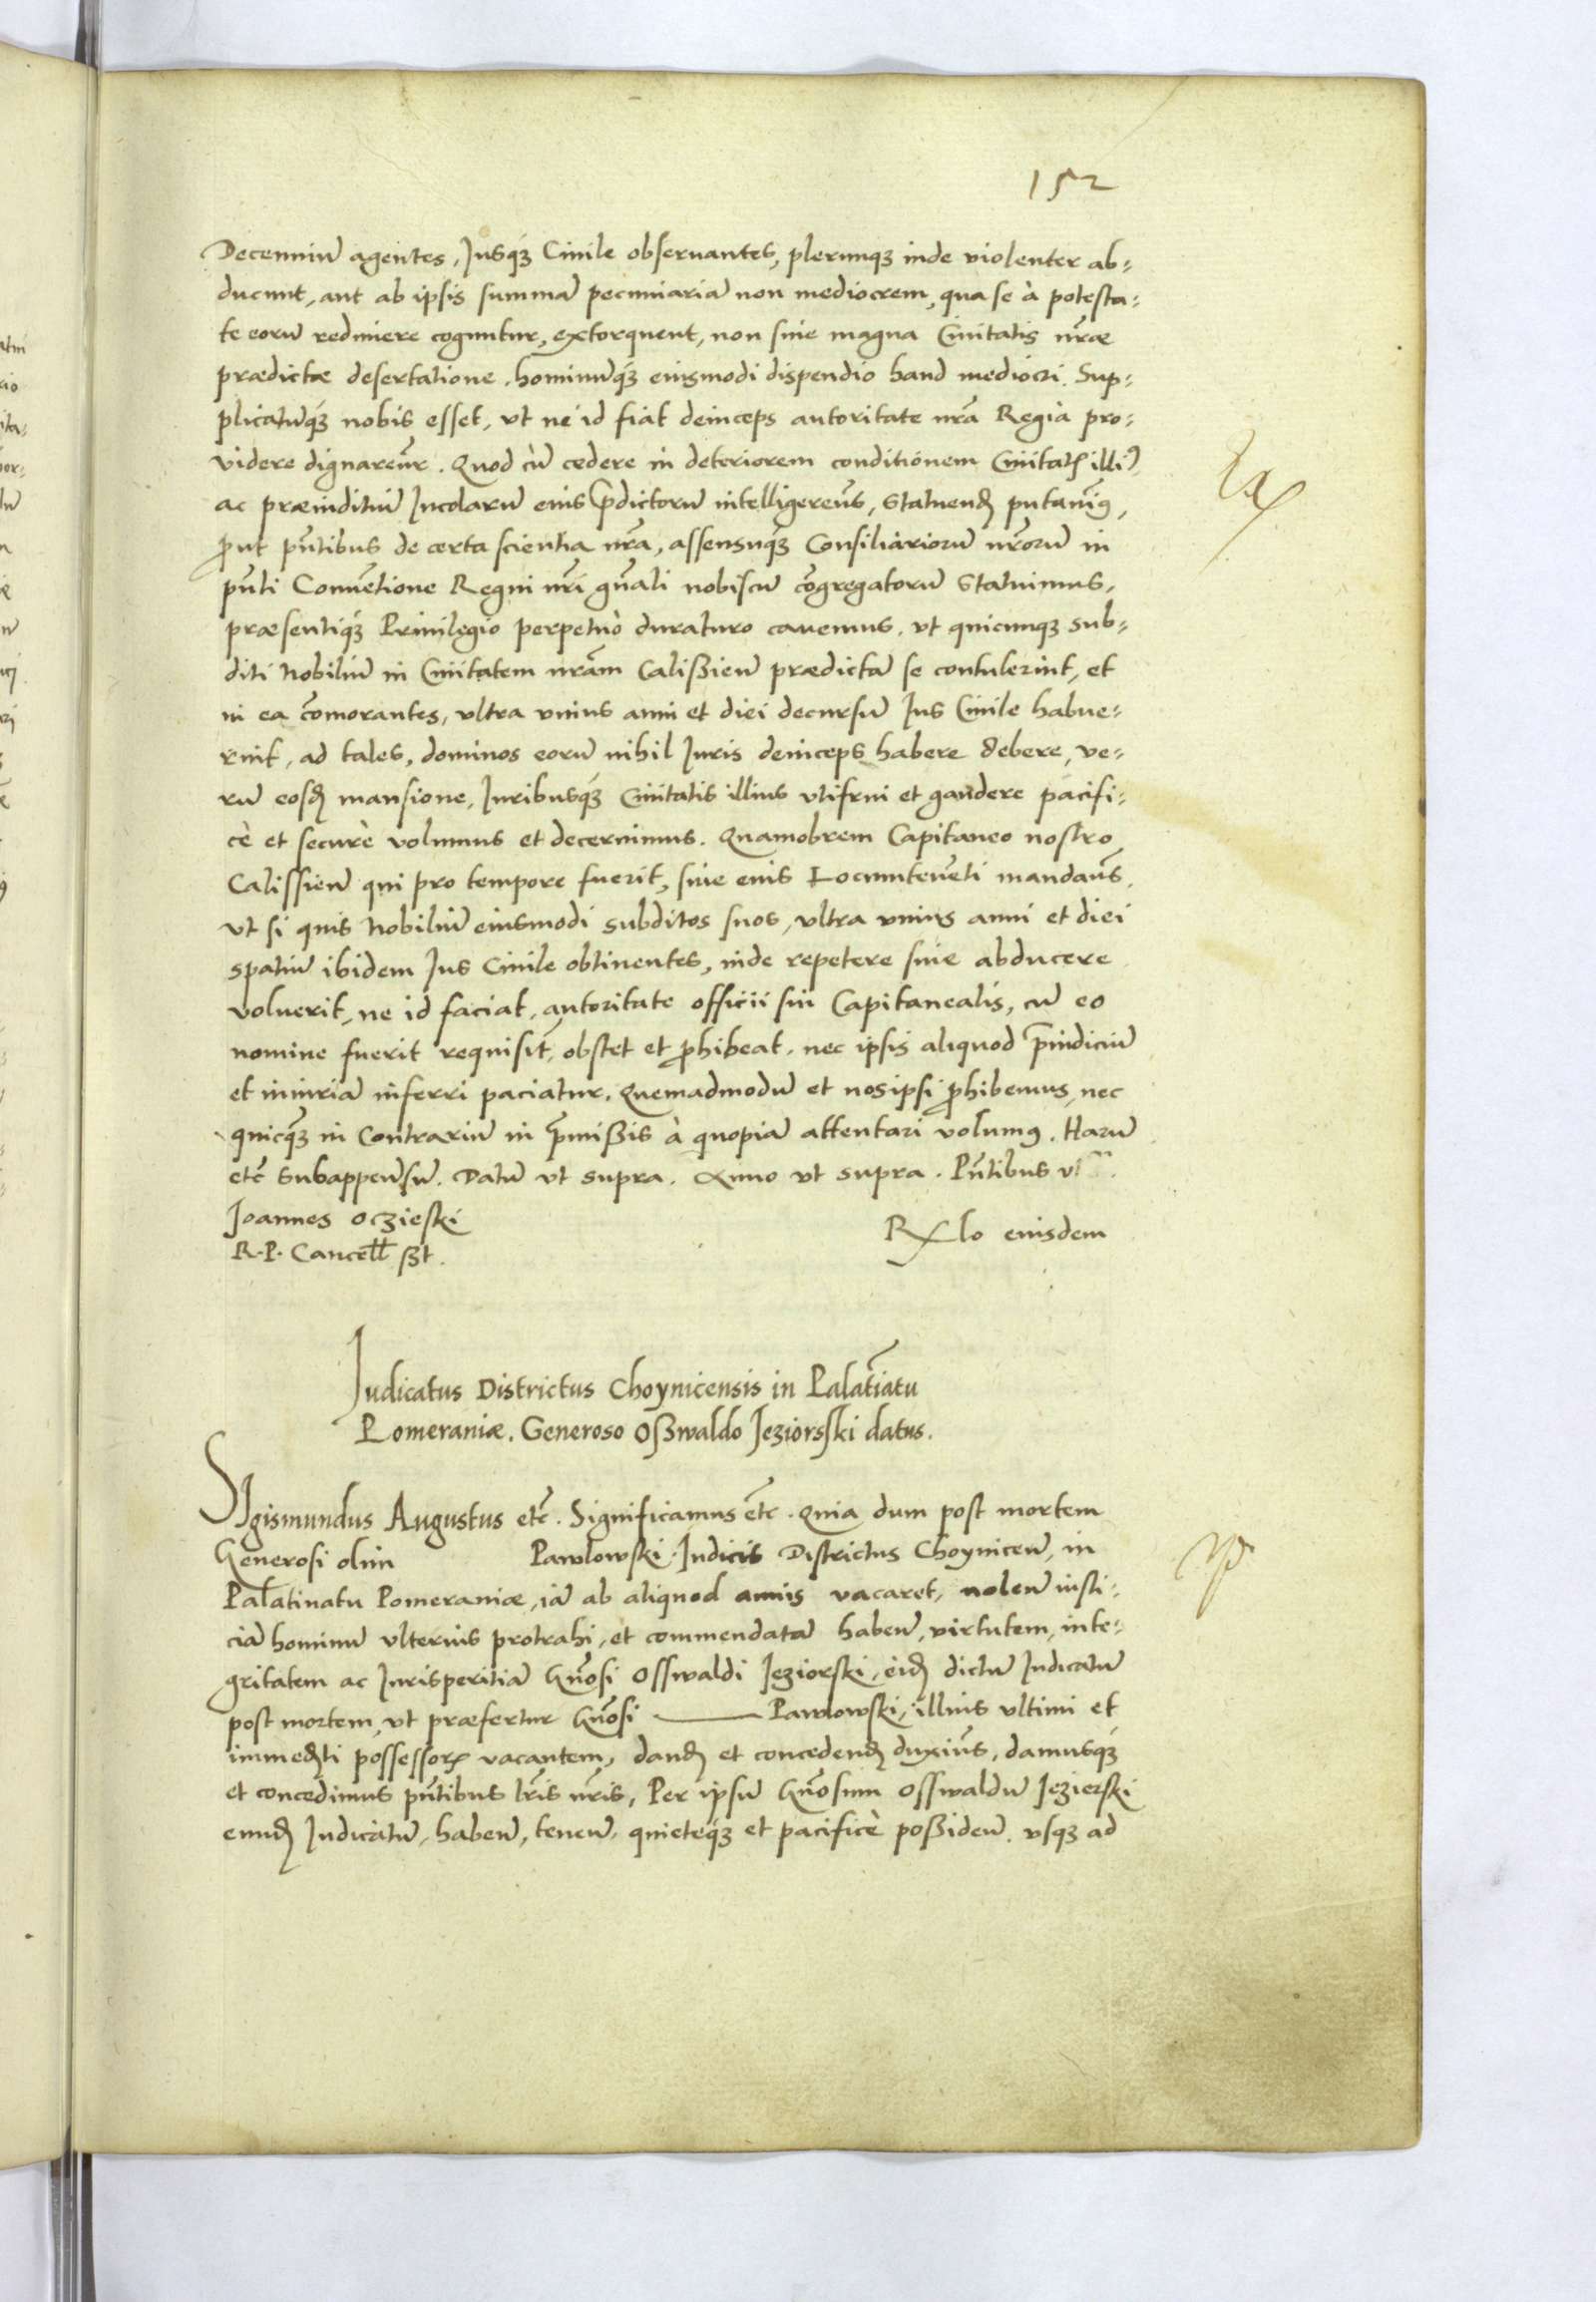 152
Decenniū agentes, Jusq́ꝫ Ciuile obseruantes, plerunqꝫ inde violenter ab=
ducunt, aut ab ipsis summā pecuniariā non mediocrem, qua se à potesta=
te eorū redimere coguntur, extorquent, non sine magna Ciuitatis nr̄æ
prædictæ desertatione, hominūq́ꝫ eiusmodi dispendio haud mediocri. Sup=
plicatūq́ꝫ nobis esset, vt ne id fiat deinceps autoritate nr̄a Regia pro=
videre dignarem̄r. Quod cū cedere in deteriorem conditionem Ciuitatꝭ illiꝰ
ac præiuditiū Incolarū eius p̄dictorū intelligerem̄s, statuendꝫ putauimꝰ,
ꝓut pn̄tibus de certa scientia nr̄a, assensuq́ꝫ Consiliariorū nr̄orū in
pn̄ti Conuētione Regni nr̄i gn̄ali nobiscū cōgregatorū statuimus,
præsentiq́ꝫ Priuilegio perpetuò duraturo cauemus, vt quicunqꝫ sub=
diti Nobiliū in Ciuitatem nr̄am Calißien̄ prædictā se contulerint, et
in ea cōmorantes, vltra vnius anni et diei decursū Jus Ciuile habue=
rint, ad tales, dominos eorū nihil Juris deinceps habere debere, ve=
rū eosdꝫ mansione, Juribusq́ꝫ Ciuitatis illius vtifrui et gaudere pacifi=
cè et securè volumus et decernimus. Quamobrem Capitaneo nostro
Calissien̄ qui pro tempore fuerit, siue eius Locumtenēti mandam̄s,
vt si quis Nobiliū eiusmodi subditos suos, vltra vnius anni et diei
spatiū ibidem Jus Ciuile obtinentes, inde repetere siue abducere
voluerit, ne id faciat, autoritate officii sui Capitanealis, cū eo
nomine fuerit requisit̄, obstet et ꝓhibeat, nec ipsis aliquod p̄iudiciū
et iniuriā inferri paciatur. Quemadmodū et nosipsi ꝓhibemus, nec
quicq́ꝫ in contrariū in p̄mißis à quopiā attentari volumꝰ. Harū
etc̄ subappen̄sū. Datū vt supra. Anno vt supra. Pn̄tibus
Joannes Oczieski
R. P. Cancell̄ sßt.
Rẋlo eiusdem
Judicatus Districtus Choynicensis in Palatīatu
Pomeraniæ. Generoso Oßwaldo Jeziorsski datus.
Sigismundus Augustus etc̄. Significamus etc̄. Quia dum post mortem
Generosi olim Pawlowski Judicis Districtus Choynicen̄, in
Pal̄atinatu Pomeraniæ, iā ab aliquod annis vacaret, nolen̄ iusti=
ciā hominū vlterius protrahi, et commendatā haben̄, virtutem, inte=
gritatem ac Jurisperitiā Gn̄osi Osswaldi Jeziorski, eidꝫ dictū Judicatū
post mortem, vt præfertur Gn̄osi —— Pawlowski, illius vltimi et
immedꝫti possessorꝭ vacantem, dandꝫ et concedendꝫ duxim̄s, damusq́ꝫ
et concedimus pn̄tibus lr̄is nr̄is, Per ipsū Gn̄osum Osswaldū Jezierski
eundꝫ Judicatū, haben̄, tenen̄, quieteq́ꝫ et pacificè poßiden̄. vsqꝫ ad